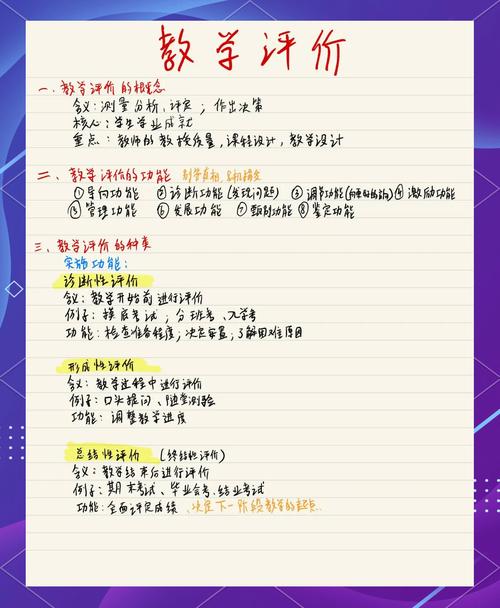 教学评价
一、教学评价的概念
含义:测量分析、评定;作出决策
核心:学生学业成就
重点:教师的教授质量,课程设计,教学设计
二、教学评价的功能
①导向功能 ②诊断功能(发现问题) ③调节功能 ④激励功能
⑤管理功能 ⑥发展功能 ⑦甄别功能 ⑧鉴定功能
三、教学评价的种类
实施功能:
诊断性评价
含义:教学开始前进行评价
例子:摸底考试;分班考、入学考
功能:检查准备程度;决定安置;了解困难原因
形成性评价
含义:教学过程中进行评价
例子:口头提问、随堂测验
功能:调整教学进度
总结性评价 (终结性评价)
含义:教学结束后进行评价
例子:期末考试、毕业会考、结业考试
功能:全面评定成绩、决定下一阶段教学的起点.